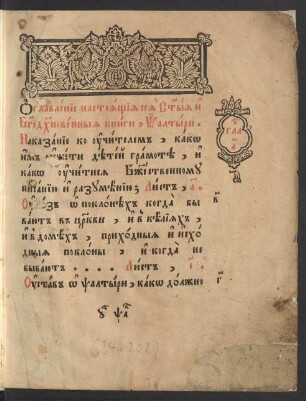 Ѻглавленїе настоѧщїѧ сеѧ Ст҃ыѧ и҆
Бг҃одꙋхнове́нныѧ кни́ги, Ѱалты́ри.
Наказа́нїе ко ᲂу҆чи́телемъ, ка́кѡ
и҆́мъ ᲂу҆чи́ти дѣте́й гра́мотѣ, и҆
ка́кѡ ᲂу҆чи́тисѧ бж҃е́ственному
писа́нїю и҆ разꙋмѣ́нїю. Ли́стъ, а҃.
Ѡ҆ поклонѣ́хъ когда̀ бы
ва́ютъ въ цр҃кви, и҆ в̾ ке́лїѧхъ,
и҆ в̾ домѣ́хъ, прихо́дныѧ и҆ и҆схо́
дныѧ покло́ны, и҆ когда̀ не
быва́ютъ. . . . . Ли́стъ,
Оу҆ста́въ ѡ҆ ѱалты́ри, ка́кѡ до́лжно
глава̀
в҃
г҃